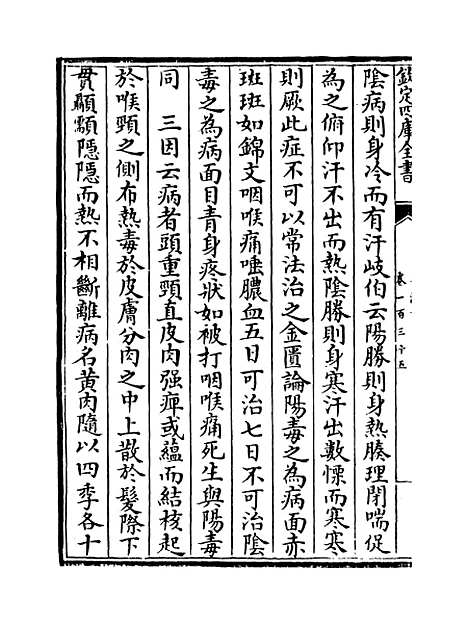 欽定四庫全書
卷一百三十五
陰病則身冷而有汗岐伯云陽勝則身熱腠理閉喘促
為之俯仰汗不出而熱陰勝則身寒汗出數慄而寒寒
則厥此症不可以常法治之金匱論陽毒之為病面赤
斑斑如錦文咽喉痛唾膿血五日可治七日不可治陰
毒之為病面目青身疼狀如被打咽喉痛死生與陽毒
同　三因云病者頭重頸直皮肉强痺或蘊而結核起
於喉頸之側布熱毒於皮膚分肉之中上散於髮際下
貫顳顬隱隱而熱不相斷離病名黄肉隨以四季各十